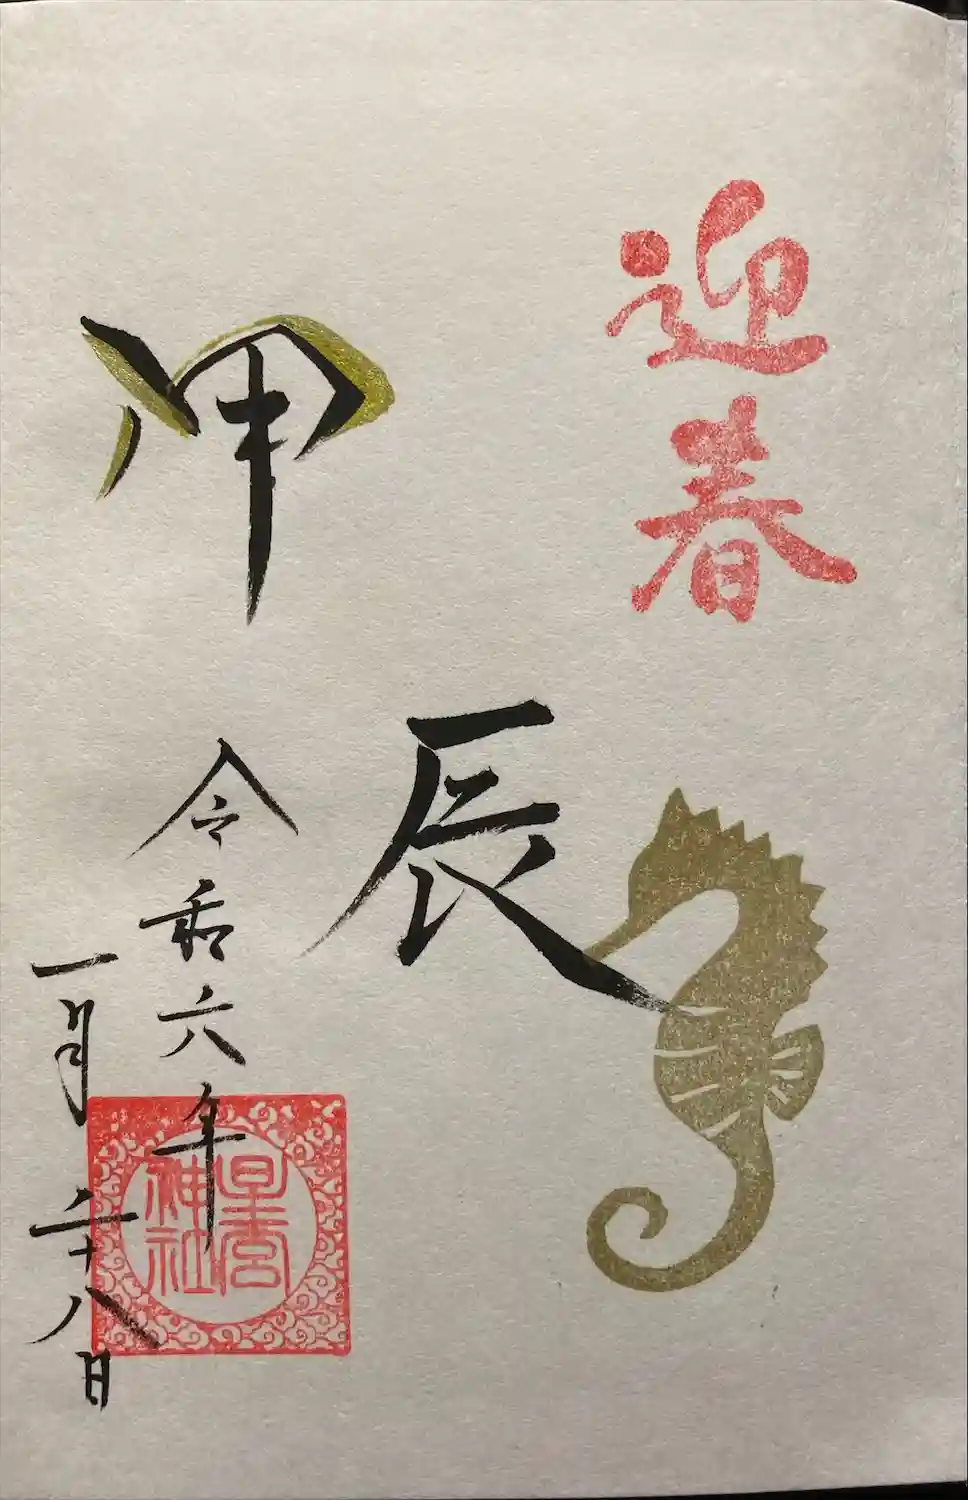 迎春
甲
辰
令和六年
一月二十八日
星宮
神社